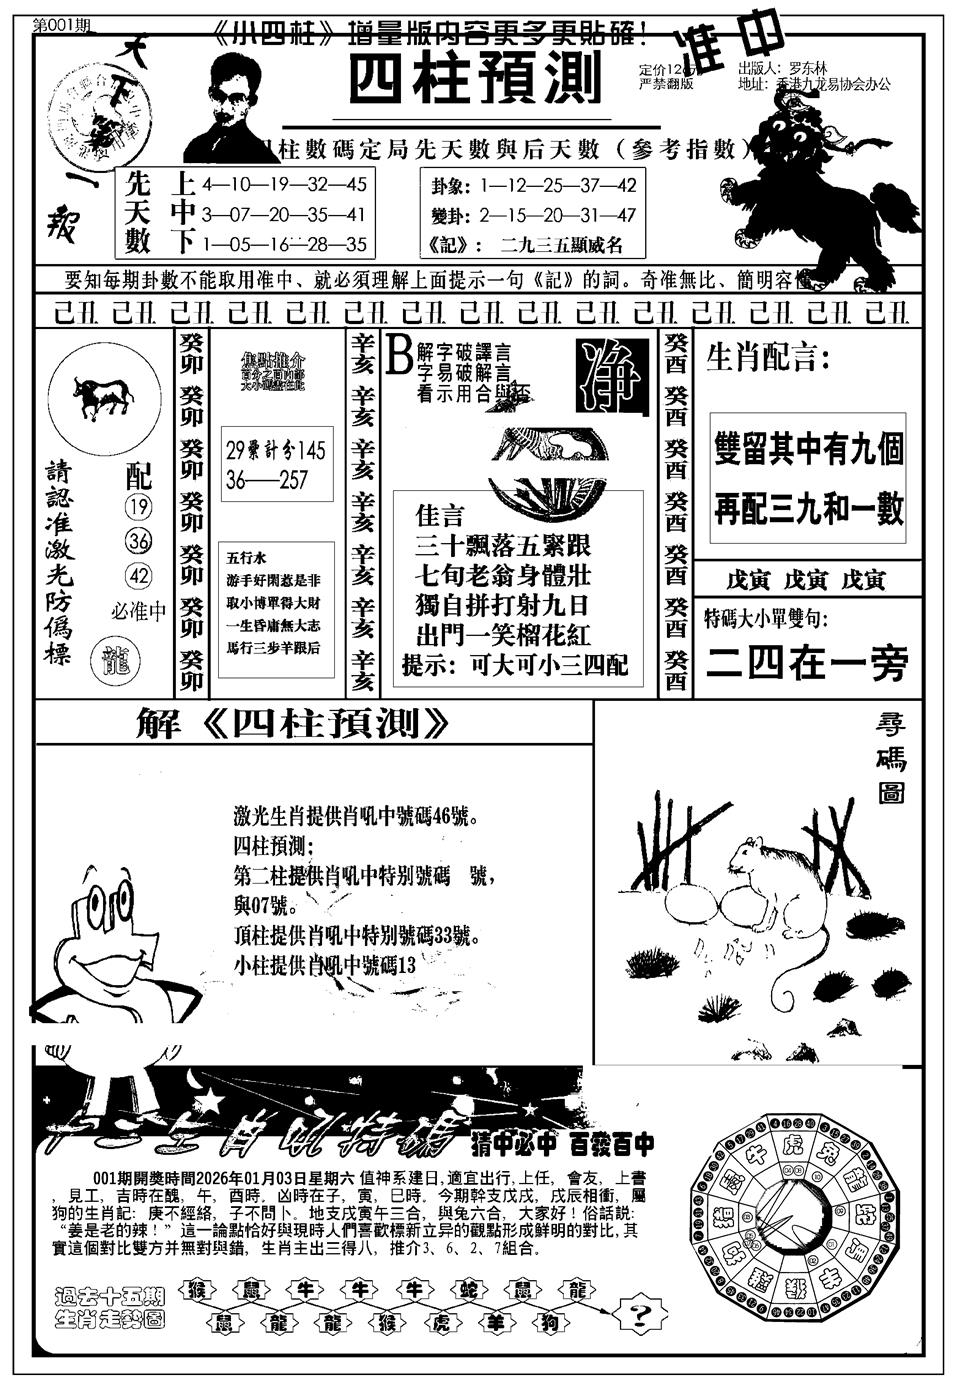 第001期
《小四柱》增量版内容更多更貼確!
准中
天下第一報
四柱預測
定价12元
严禁翻版
出版人：罗东林
地址：香港九龙易协会办公
柱數碼定局先天數與后天數（參考指數）
先天數
上 4—10—19—32—45
中 3—07—20—35—41
下 1—05—16—28—35
卦象：1—12—25—37—42
變卦：2—15—20—31—47
《記》：二九三五顯威名
要知每期卦數不能取用准中、就必須理解上面提示一句《記》的詞。奇准無比、簡明容懂
己丑 己丑 己丑 己丑 己丑 己丑 己丑 己丑 己丑 己丑 己丑 己丑 己丑 己丑 己丑
請認准激光防僞標
配
19
36
42
必准中
龍
癸卯 癸卯 癸卯 癸卯 癸卯 癸卯 癸卯
焦點推介
29票計分145
36——257
五行水
游手好閑惹是非
取小博單得大財
一生昏庸無大志
馬行三步羊跟后
辛亥 辛亥 辛亥 辛亥 辛亥 辛亥 辛亥
B
解字破譯言
字易破解言
看示用合與否
净
佳言
三十飄落五緊跟
七旬老翁身體壯
獨自拼打射九日
出門一笑榴花紅
提示：可大可小三四配
癸酉 癸酉 癸酉 癸酉 癸酉 癸酉 癸酉
生肖配言：
雙留其中有九個
再配三九和一數
戊寅 戊寅 戊寅
特碼大小單雙句：
二四在一旁
解《四柱預測》
激光生肖提供肖吼中號碼46號。
四柱預測：
第二柱提供肖吼中特别號碼 號，
與07號。
頂柱提供肖吼中特别號碼33號。
小柱提供肖吼中號碼13
尋碼圖
猜中必中 百發百中
001期開獎時間2026年01月03日星期六 值神系建日,適宜出行,上任，會友，上書
，見工，吉時在醜，午，酉時。凶時在子，寅，巳時。今期幹支戊戌，戊辰相衝，屬
狗的生肖記：庚不經絡，子不問卜。地支戌寅午三合，與兔六合，大家好！俗話説：
“姜是老的辣！”這一論點恰好與現時人們喜歡標新立异的觀點形成鮮明的對比,其
實這個對比雙方并無對與錯，生肖主出三得八，推介3、6、2、7組合。
過去十五期
生肖走勢圖
猴 鼠 牛 牛 牛 蛇 鼠 龍
鼠 龍 龍 猴 虎 羊 狗
?
牛 虎 兔 馬 羊 猴